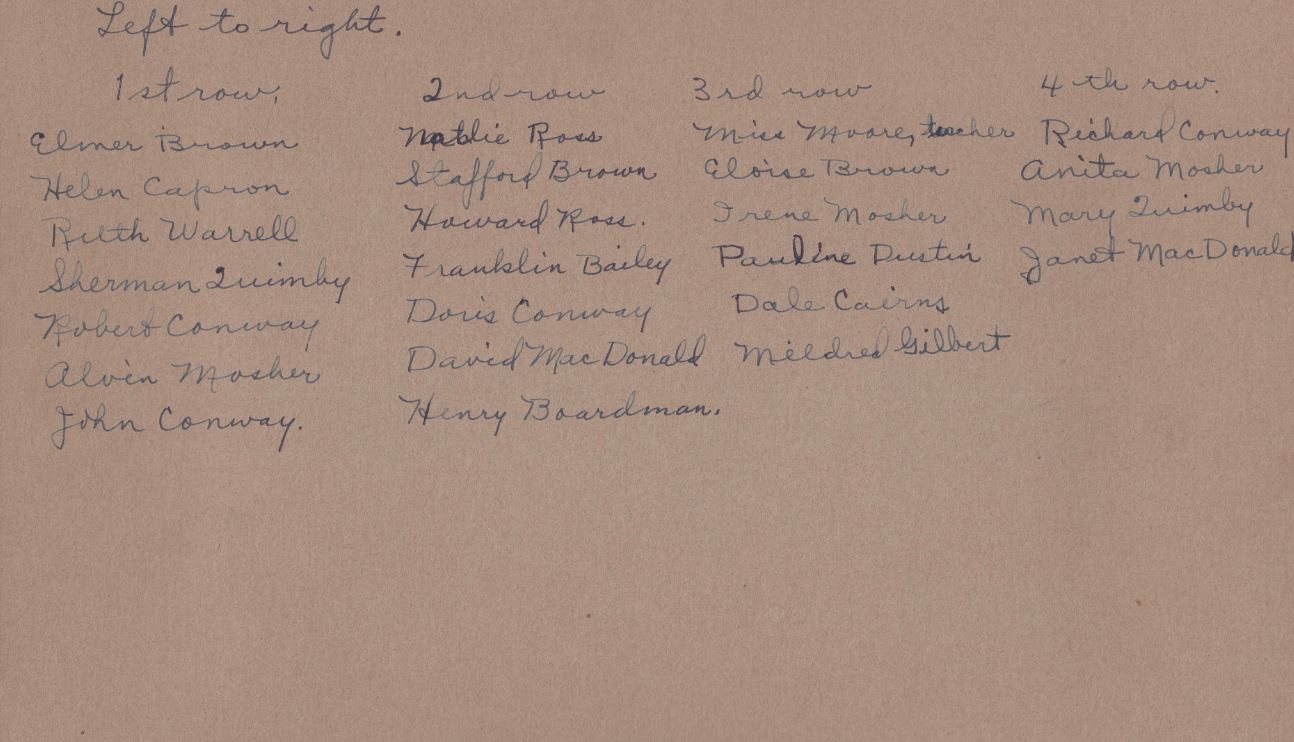 Left to right.
1st row.
Elmer Brown
Helen Capron
Ruth Warrell
Sherman Quimby
Robert Conway
Alvin Mosher
John Conway.
2nd row
Natlie Ross
Stafford Brown
Howard Ross.
Franklin Bailey
Doris Conway
David MacDonald
Henry Boardman.
3rd row
Miss Moore, teacher
Eloise Brown
Irene Mosher
Pauline Dustin
Dale Cairns
Mildred Gilbert
4th row.
Richard Conway
Anita Mosher
Mary Quimby
Janet MacDonald